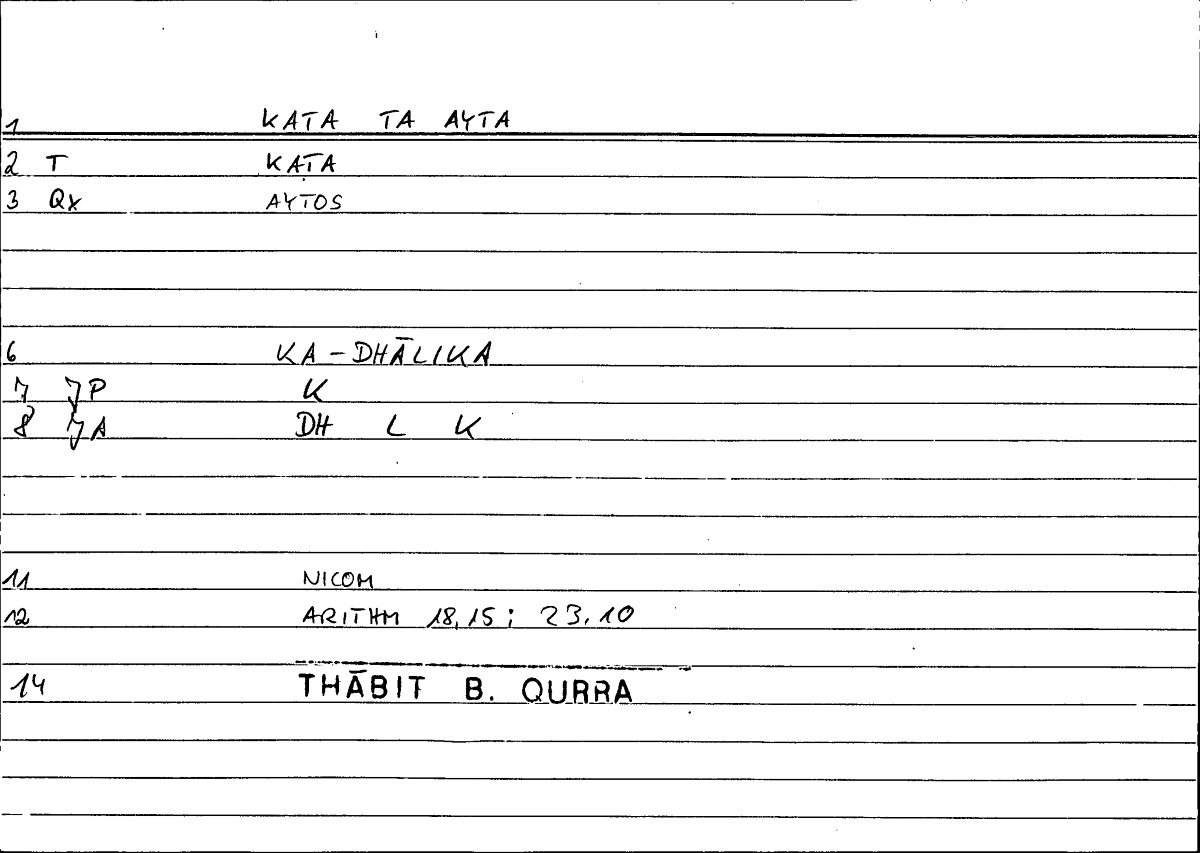 1 KATA TA AYTA
2 T KATA
3 Qx AYTOS
6 KA-DHĀLIKA
7 JP K
8 JA DH L K
11 NICOM
12 ARITHM 18,15; 23.10
14 THĀBIT B. QURRA